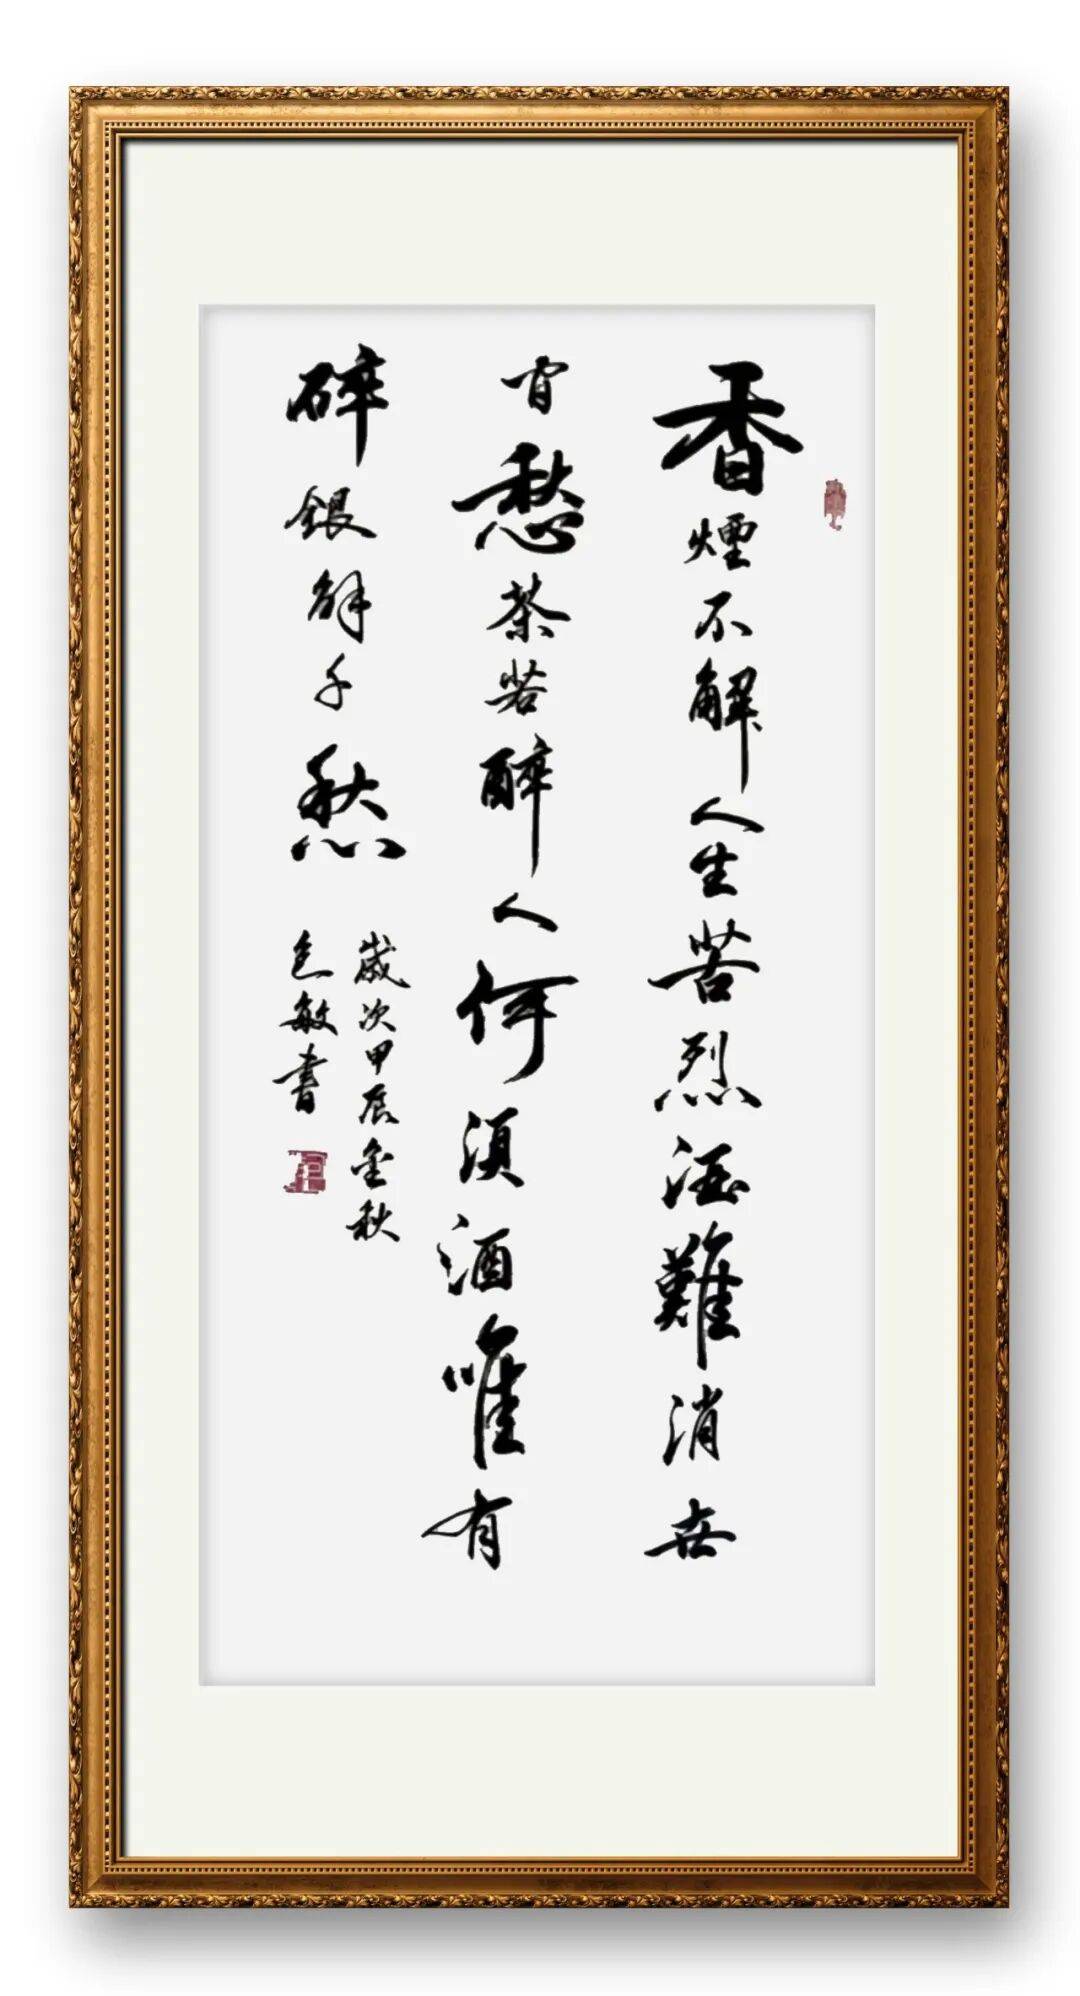 香煙不解人生苦烈酒難消世
官愁茶若醉人何須酒唯有
碎銀解千愁
歲次甲辰金秋
色敏書